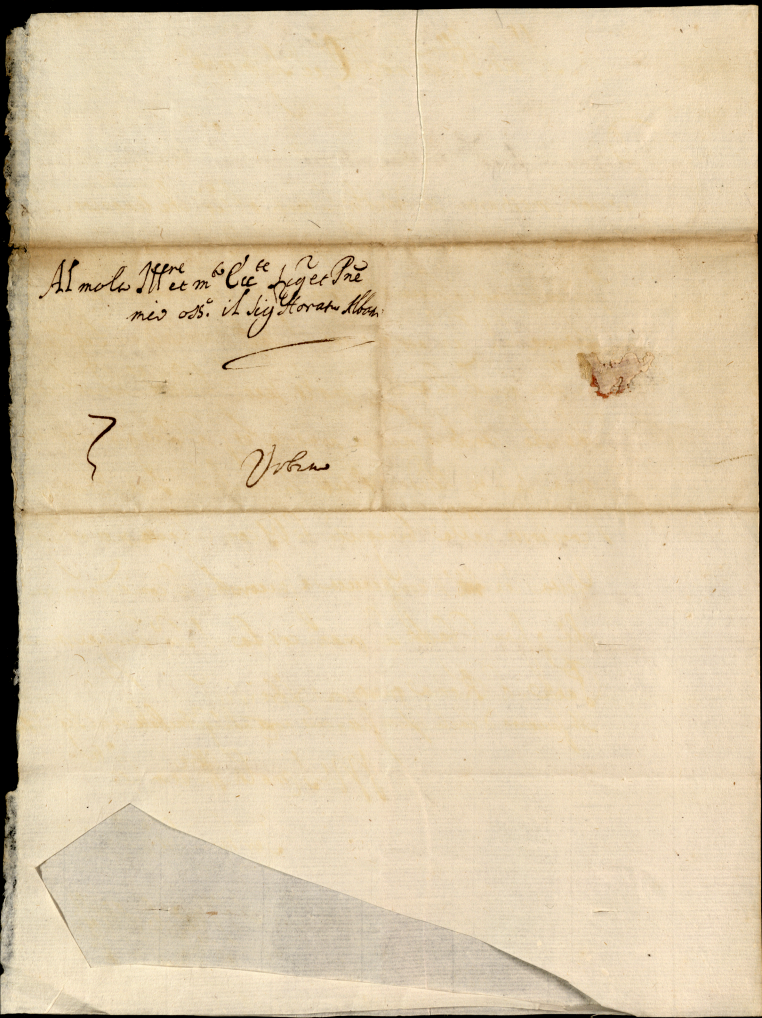 Al molto Ill.re et m.to Ecc.te Sig.r et P.ne
mio oss.o il Sig.r Horatio Albani
Urbino